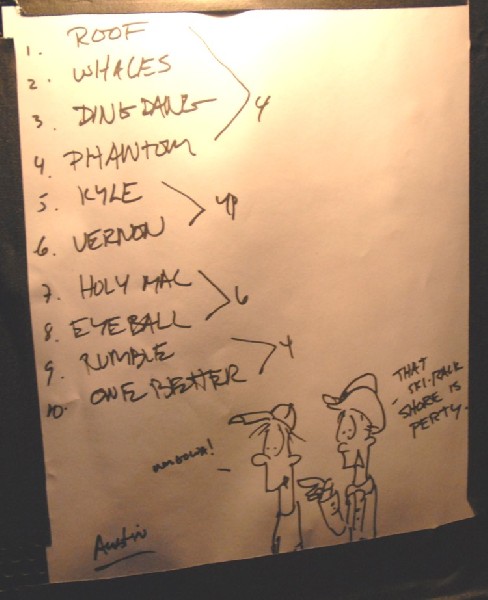 1. ROOF
2. WHALES
3. DING DANG
4. PHANTOM
4
5. KYLE
6. VERNON
7. HOLY MAC
8. EYEBALL
6
9. RUMBLE
10. ONE BETTER
4
THAT
SKI-RACK
SHORE IS
PERTY.
Austin